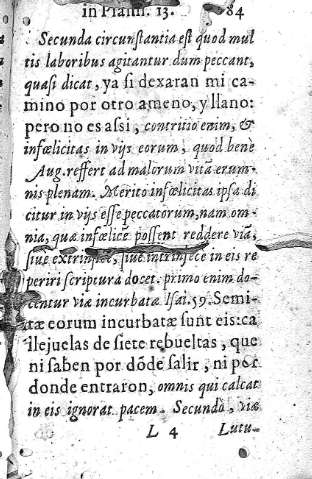 in Psalm. 13. 84
Secunda circunstantia est quod mul
tis laboribus agitantur dum peccant,
quasi dicat, ya si dexaran mi ca-
mino por otro ameno, y llano:
pero no es assi, contritio enim, &
infœlicitas in vijs eorum, quod bene
Aug. reffert ad malorum vitã erum-
nis plenam. Merito infœlicitas ipsa di
citur in vijs esse peccatorum, nam om-
nia, quæ infœlicẽ possent reddere viã,
siue extrinsece, siue intrinsece in eis re
periri scriptura docet. primo enim do-
centur viæ incurbatæ Isai. 59. Semi-
tæ eorum incurbatæ sunt eis: ca
llejuelas de siete rebueltas, que
ni saben por dõde salir, ni por
donde entraron, omnis qui calcat
in eis ignorat pacem. Secundò, viæ
L 4 Lutu-